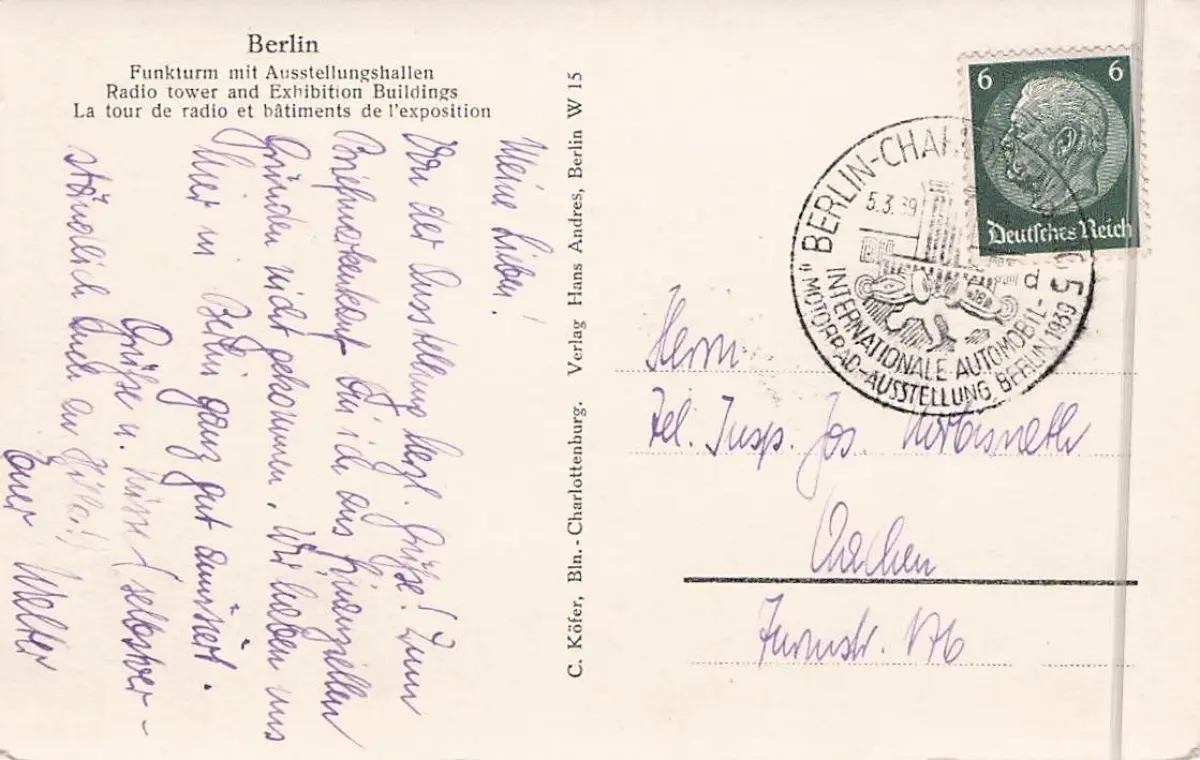 Berlin
Funkturm mit Ausstellungshallen
Radio tower and Exhibition Buildings
La tour de radio et bâtiments de l'exposition
Meine Lieben!
Von der Ausstellung herzl. Grüße! Zum
Briefmarkenkauf bin ich aus finanziellen
Gründen nicht gekommen. Wir haben uns
hier in Berlin ganz gut amüsiert.
Grüße u. Küsse (selbstver-
ständlich auch an
Euer Walter
C. Köfer, Bln.-Charlottenburg. Verlag Hans Andres, Berlin W 15
6 6
Deutsches Reich
BERLIN-CHA 5
5.3.39
d
INTERNATIONALE AUTOMOBIL-
"MOTORRAD-AUSSTELLUNG BERLIN 1939
Herrn
Tel. Insp. Jos.
Aachen
Turmstr.